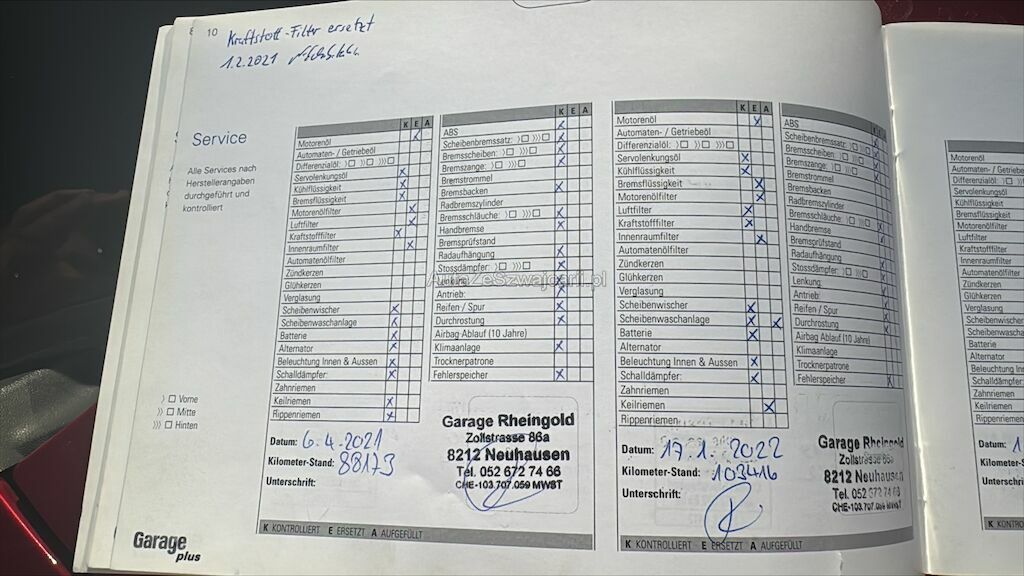 10
Kraftstoff-Filter ersetzt
1.2.2021
Service
Alle Services nach
Herstellerangaben
durchgeführt und
kontrolliert
》□ Vorne
》》□ Mitte
》》》□ Hinten
Garage
plus
K E A
Motorenöl
Automaten- / Getriebeöl
Differenzialöl: 》□ 》》□ 》》》□
Servolenkungsöl
Kühlflüssigkeit
Bremsflüssigkeit
Motorenölfilter
Luftfilter
Kraftstofffilter
Innenraumfilter
Automatenölfilter
Zündkerzen
Glühkerzen
Verglasung
Scheibenwischer
Scheibenwaschanlage
Batterie
Alternator
Beleuchtung Innen & Aussen
Schalldämpfer:
Zahnriemen
Keilriemen
Rippenriemen
K E A
ABS
Scheibenbremssatz: 》□ 》》》□
Bremsscheiben: 》□ 》》》□
Bremszange: 》□ 》》》□
Bremstrommel
Bremsbacken
Radbremszylinder
Bremsschläuche: 》□ 》》》□
Handbremse
Bremsprüfstand
Radaufhängung
Stossdämpfer: 》□ 》》》□
Lenkung
Antrieb:
Reifen / Spur
Durchrostung
Airbag Ablauf (10 Jahre)
Klimaanlage
Trocknerpatrone
Fehlerspeicher
Datum: 6.4.2021
Kilometer-Stand: 88173
Unterschrift:
Garage Rheingold
Zollstrasse 86a
8212 Neuhausen
Tel. 052 672 74 66
CHE-103.707.059 MWST
K KONTROLLIERT E ERSETZT A AUFGEFÜLLT
K E A
Motorenöl
Automaten- / Getriebeöl
Differenzialöl: 》□ 》》□ 》》》□
Servolenkungsöl
Kühlflüssigkeit
Bremsflüssigkeit
Motorenölfilter
Luftfilter
Kraftstofffilter
Innenraumfilter
Automatenölfilter
Zündkerzen
Glühkerzen
Verglasung
Scheibenwischer
Scheibenwaschanlage
Batterie
Alternator
Beleuchtung Innen & Aussen
Schalldämpfer:
Zahnriemen
Keilriemen
Rippenriemen
ABS
Scheibenbremssatz: 》□ 》》》□
Bremsscheiben: 》□ 》》》□
Bremszange: 》□ 》》》□
Bremstrommel
Bremsbacken
Radbremszylinder
Bremsschläuche: 》□ 》》》□
Handbremse
Bremsprüfstand
Radaufhängung
Stossdämpfer: 》□ 》》》□
Lenkung
Antrieb:
Reifen / Spur
Durchrostung
Airbag Ablauf (10 Jahre)
Klimaanlage
Trocknerpatrone
Fehlerspeicher
Datum: 17.1.2022
Kilometer-Stand: 103416
Unterschrift:
Garage Rheingold
Zollstrasse 86a
8212 Neuhausen
Tel. 052 672 74 66
CHE-103.707.059 MWST
K KONTROLLIERT E ERSETZT A AUFGEFÜLLT
AutaZeSzwajcarii.pl
Motorenöl
Automaten- / Get
Differenzialöl: 》
Servolenkungsöl
Kühlflüssigkeit
Bremsflüssigkeit
Motorenölfilter
Luftfilter
Kraftstofffilter
Innenraumfilter
Automatenölfilter
Zündkerzen
Glühkerzen
Verglasung
Scheibenwischer
Scheibenwaschanl
Batterie
Alternator
Beleuchtung Innen
Schalldämpfer:
Zahnriemen
Keilriemen
Rippenriemen
Datum:
Kilometer-Stand
Unterschrift:
K KONT